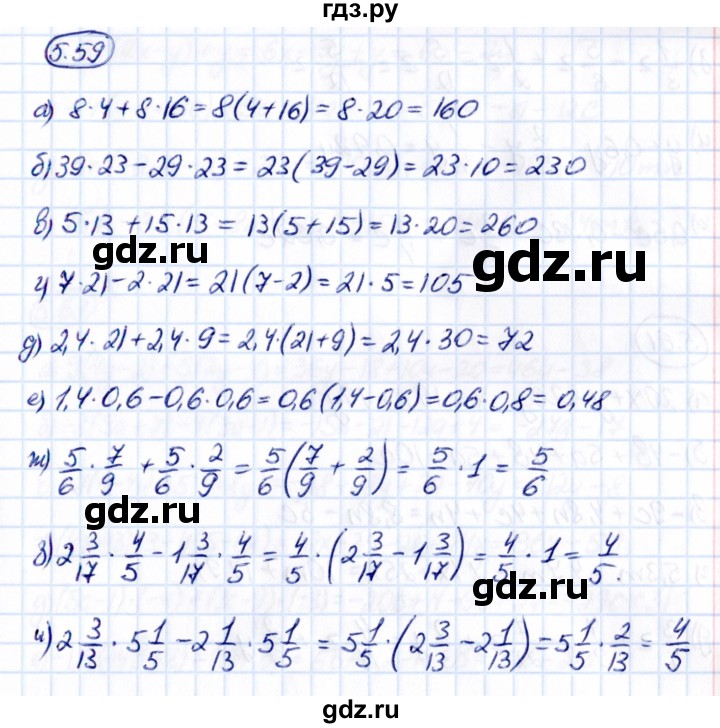 гдз.ру
5.59
а) 8·4+8·16=8(4+16)=8·20=160
б) 39·23-29·23=23(39-29)=23·10=230
в) 5·13+15·13=13(5+15)=13·20=260
gdz.ru gdz.ru
г) 7·21-2·21=21(7-2)=21·5=105
д) 2,4·21+2,4·9=2,4·(21+9)=2,4·30=72
е) 1,4·0,6-0,6·0,6=0,6(1,4-0,6)=0,6·0,8=0,48
ж) 5/6 · 7/9 + 5/6 · 2/9 = 5/6 (7/9 + 2/9) = 5/6 · 1 = 5/6
gdz.ru gdz.ru
з) 2 3/17 · 4/5 - 1 3/17 · 4/5 = 4/5 · (2 3/17 - 1 3/17) = 4/5 · 1 = 4/5.
и) 2 3/13 · 5 1/5 - 2 1/13 · 5 1/5 = 5 1/5 · (2 3/13 - 2 1/13) = 5 1/5 · 2/13 = 4/5
gdz.ru gdz.ru